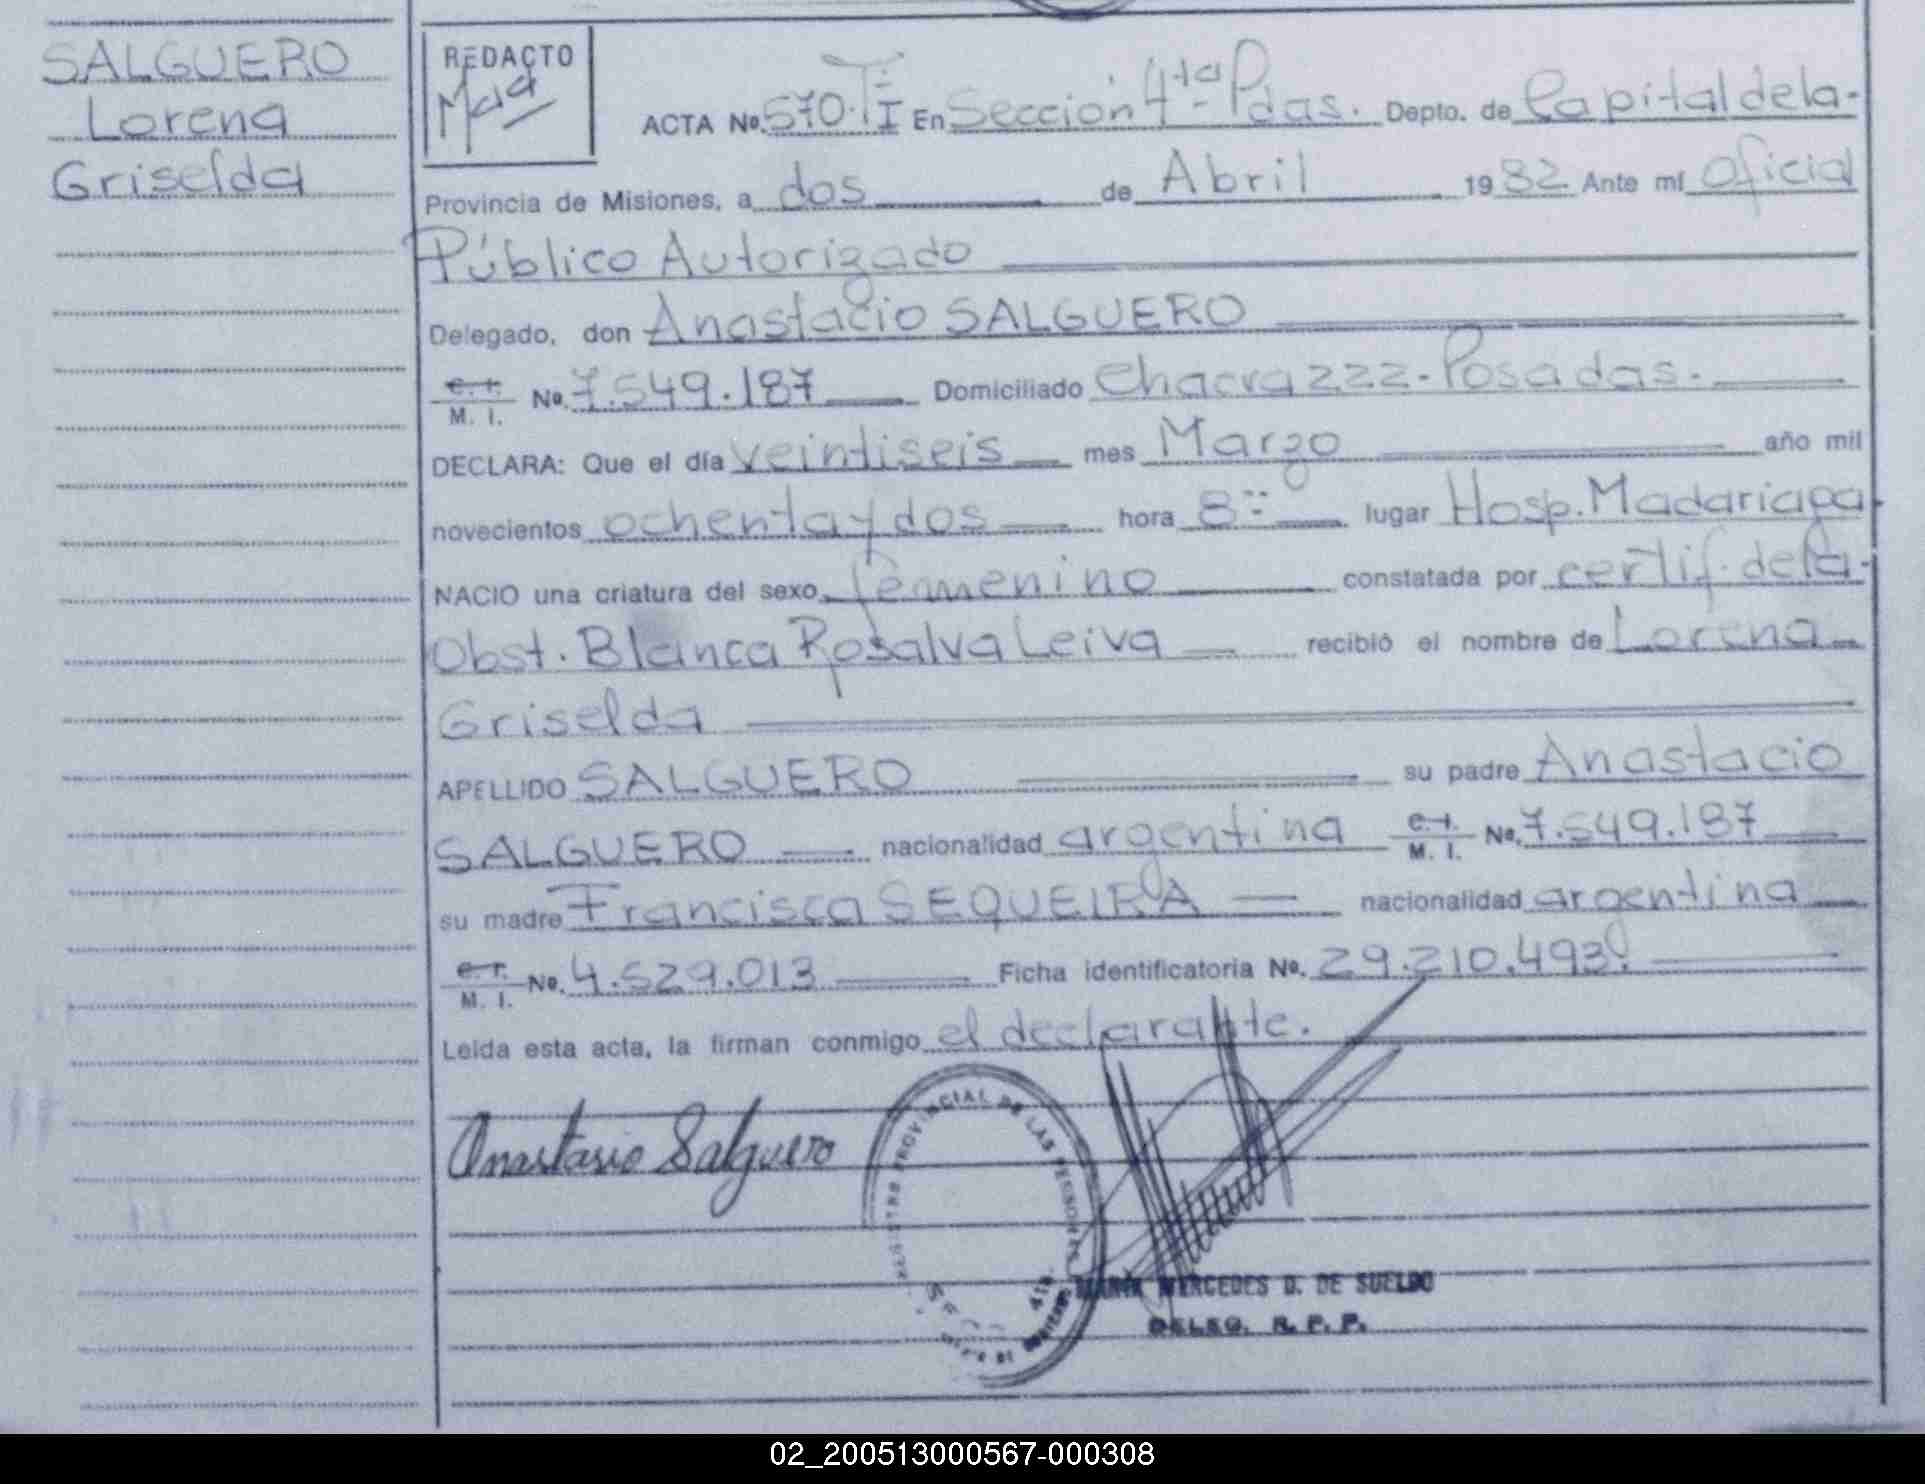 SALGUERO
Lorena
Griselda
REDACTO
ACTA No. 570. TI En Sección 4ta Pdas. Depto. de Capital de la-
Provincia de Misiones, a dos de Abril 1982 Ante mí Oficial
Público Autorizado
Delegado, don Anastacio SALGUERO
C. I. M. I. No. 7.549.187 Domiciliado Chacra 222-Posadas.
DECLARA: Que el día veintiseis mes Marzo año mil
novecientos ochenta y dos hora 8:- lugar Hosp. Madariaga
NACIO una criatura del sexo femenino constatada por certif. de la-
Obst. Blanca Rosalva Leiva recibió el nombre de Lorena
Griselda
APELLIDO SALGUERO su padre Anastacio
SALGUERO nacionalidad argentina C. I. M. I. No. 7.549.187
su madre Francisca SEQUEIRA nacionalidad argentina
C. I. M. I. No. 4.529.013 Ficha identificatoria No. 29.210.493.
Leída esta acta, la firman conmigo el declarante.
Anastasio Salguero
REGISTRO PROVINCIAL DE LAS PERSONAS
MARIA MERCEDES D. DE SUELDO
DELEG. R. P. P.
02_200513000567-000308